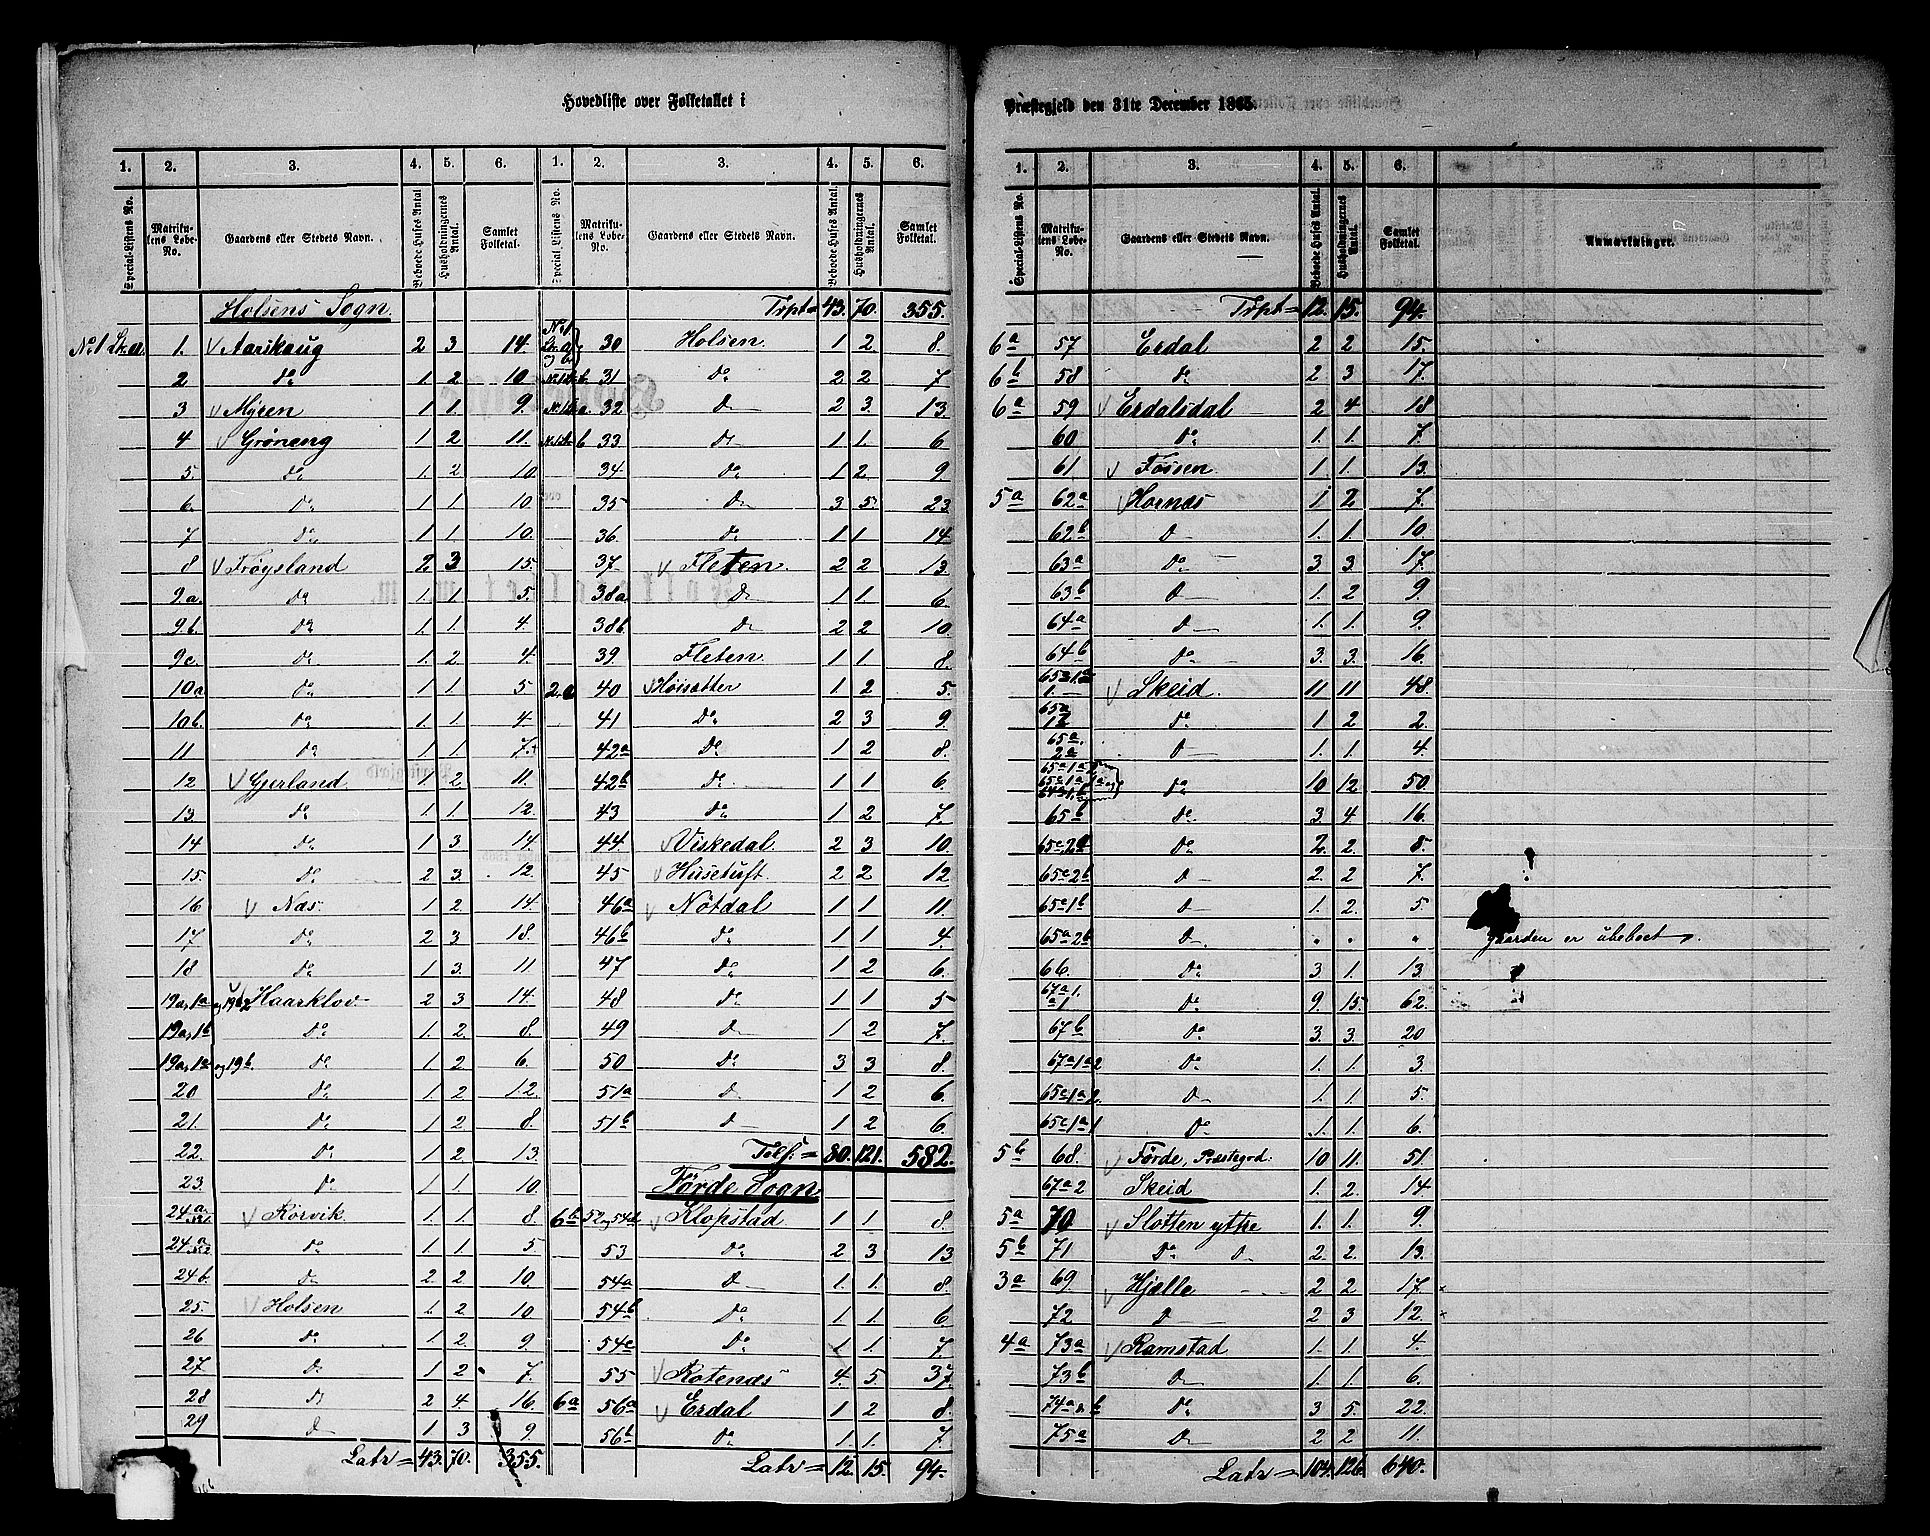 Hovedliste over Folketallet i
1. 2. 3. 4. 5. 6. 1. 2. 3. 4. 5. 6.
Special-Listens No. Matrikulens Løbe-No. Gaardens eller Stedets Navn. Beboede Huses Antal Husholdningernes Antal. Samlet Folketal. Special-Listens No. Matrikulens Løbe-No. Gaardens eller Stedets Navn. Beboede Huses Antal. Husholdningernes Antal. Samlet Folketal.
Holsens Sogn.
No 1 Litr. a. 1. Aarskaug 2 3 14.
2 do 1. 2. 10.
3 Myren 1 1. 9.
4 Grøneng 1 2 11.
5. do 1. 2 10.
6. do 1 1 10.
7 do 1 1. 10.
8 Frøysland 2 3 15.
9.a. do 1. 1 5.
9.b. do 1. 1. 4.
9c. do 1. 2. 4.
10a do 1 1. 5
10b. do 1. 1. 4.
11 do 1 1. 7.
12 Gjerland 1. 2 11.
13. do 1. 1. 12.
14 do 1 3 14.
15. do 2 3. 12.
16 Næs. 1 2. 14.
17 do 2 3 18.
18 do 1 3. 11
19a,1a og 19b2 Haarklov 2 3 14.
19a,1b do 1. 2. 8.
19a,1a og 19b. do 1 2 6.
20 do 1 2 12.
21. do 1 2 8.
22. do 1 2 13.
23. do 1 1. 10.
24a Rørvik. 1. 1. 8.
24a do 1 1. 5.
24b. do 2 2 10.
25. Holsen 1. 2 10
26 do 1 2. 9.
27. do 1 2 7.
28 do 2 4 16.
29 do 1 3. 9.
Latr = 43. 70. 355.
Trpt = 43. 70. 355.
30 Holsen. 1 2. 8.
31 do 2 2 7
32 do 2 3. 13.
33 do 1 1. 6
34. do 1 2. 9
35. do 3 5. 23
36. do 1 1 14.
37 Fleten. 2 2 13
38a do 1 1. 6.
38b. do 2 2 10.
39. Fleten. 1 1. 8.
2.a 40 Høisætter 1. 2 5.
41 do 2 3 9.
42a do 1 2 8.
42b do 1 1 6.
43 do 1 2 7.
44. Viskedal. 2 3 10.
45 Husetuft 2 2 12
46a Nötdal 1 1 11.
46b do 1 1 4.
47 do 1 2 6.
48 do 1 1 5
49 do 1 2 7.
50 do 3 3 8.
51a do 1 2 6.
51b do 1 2 6.
Tils. = 80. 121. 582.
Førde Sogn
6b 52 og 54d Klopstad 1 1 8.
53 do 2 3 13
54a do 1. 1. 8.
54b do 1 1 6.
54c do 1. 1. 7.
55 Rotenæs 4. 5. 37.
6a 56a Erdal 1 2 8.
56b do 1. 1. 7.
Latr = 12. 15. 94.
Præstegjeld den 31te December 1865.
1. 2. 3. 4. 5. 6.
Special-Listens No. Matrikulens Løbe-No. Gaardens eller Stedets Navn. Beboede Huses Antal. Husholdningernes Antal. Samlet Folketal. Anmærkninger.
Trpt = 12. 15. 94.
6a 57 Erdal 2 2 15.
6b 58 do 2 3 17.
6a 59 Erdalsdal 2 4 18
60 do 1. 1. 7.
61 Fossen. 1 1. 13.
5a 62a Hornæs 1 2 7.
62b do 1. 1. 10.
63a do 3. 3. 17.
63b do 1. 2 9.
64a do 1. 1. 9.
64b do 3. 3. 16.
Skeid. 11 11 48.
do 1. 2 2.
65a. 2a do 1. 1. 4.
do 10 12 50.
65b do 3. 4 16.
65c.2a do 2. 2. 8.
65c2b do 2. 2 7.
65a1b do 1. 2. 5
65a2b do " " " Gaarden er ubeboet.
66. do 3 1. 13.
67a1. a1 do 9. 15. 62.
67b do 3. 3. 20
67a1a2 do 1. 1. 3.
65c1a2. do 1 1 5.
65c1a1 do 1. 1. 6.
5b 68. Førde, Præstegrd. 10 11. 51.
67a2 Skeid 1. 2. 14
5a 70 Slotten yttre 1. 1. 9.
5b 71 do do 2. 2. 13.
3a 69 Hjelle 2 2 17.
72 do 2 3 12.
4a 73a Ramstad 1. 1. 4.
73b do 1. 1. 6.
74a & b do 3 5. 22.
75a do 2 2 11.
Latr = 104. 126. 640.